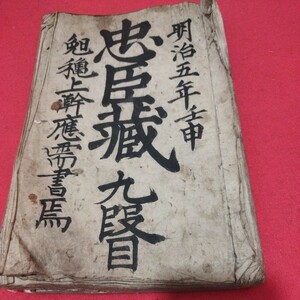 明治五年壬申
忠臣藏九段目
上幹應需書焉